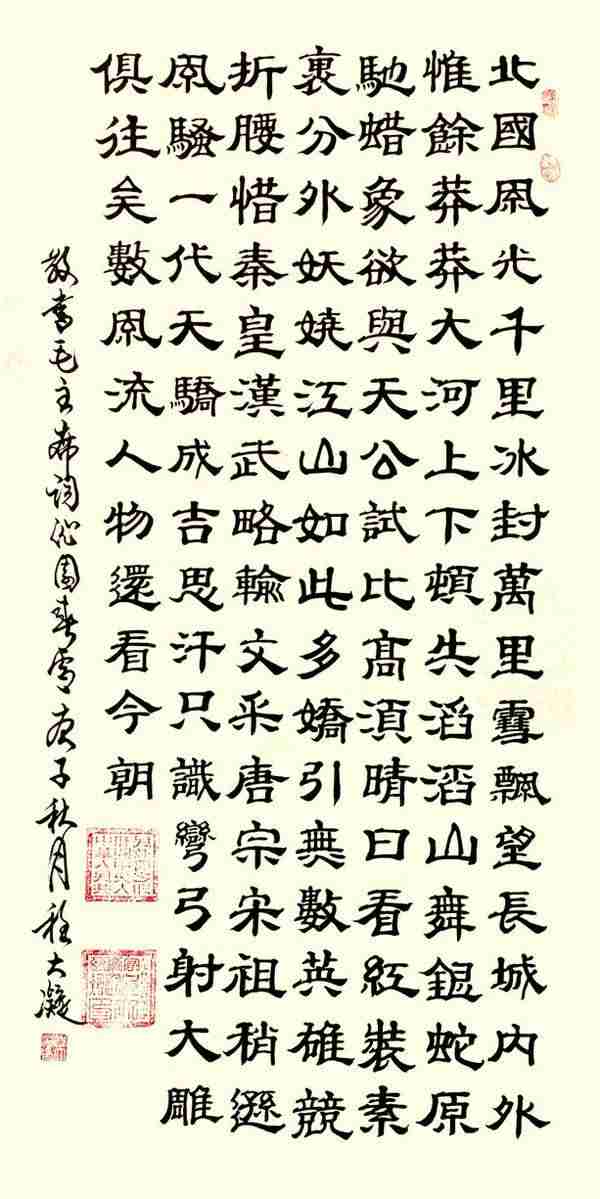 北國風光千里冰封萬里雪飄望長城内外
惟餘莽莽大河上下頓失滔滔山舞銀蛇原
馳蜡象欲與天公試比高須晴日看紅裝素
裹分外妖嬈江山如此多嬌引無數英雄競
折腰惜秦皇漢武略輸文采唐宗宋祖稍遜
風騷一代天驕成吉思汗只識彎弓射大雕
俱往矣數風流人物還看今朝
敬書毛主席词沁園春雪庚子秋月程大凝